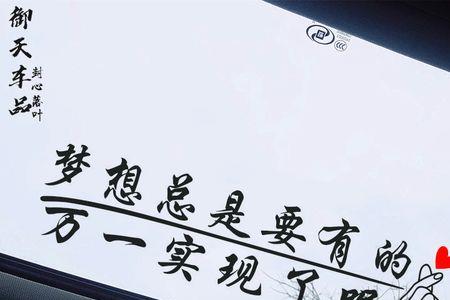 御天车品
封心落叶
CCC
梦想总是要有的
万一实现了